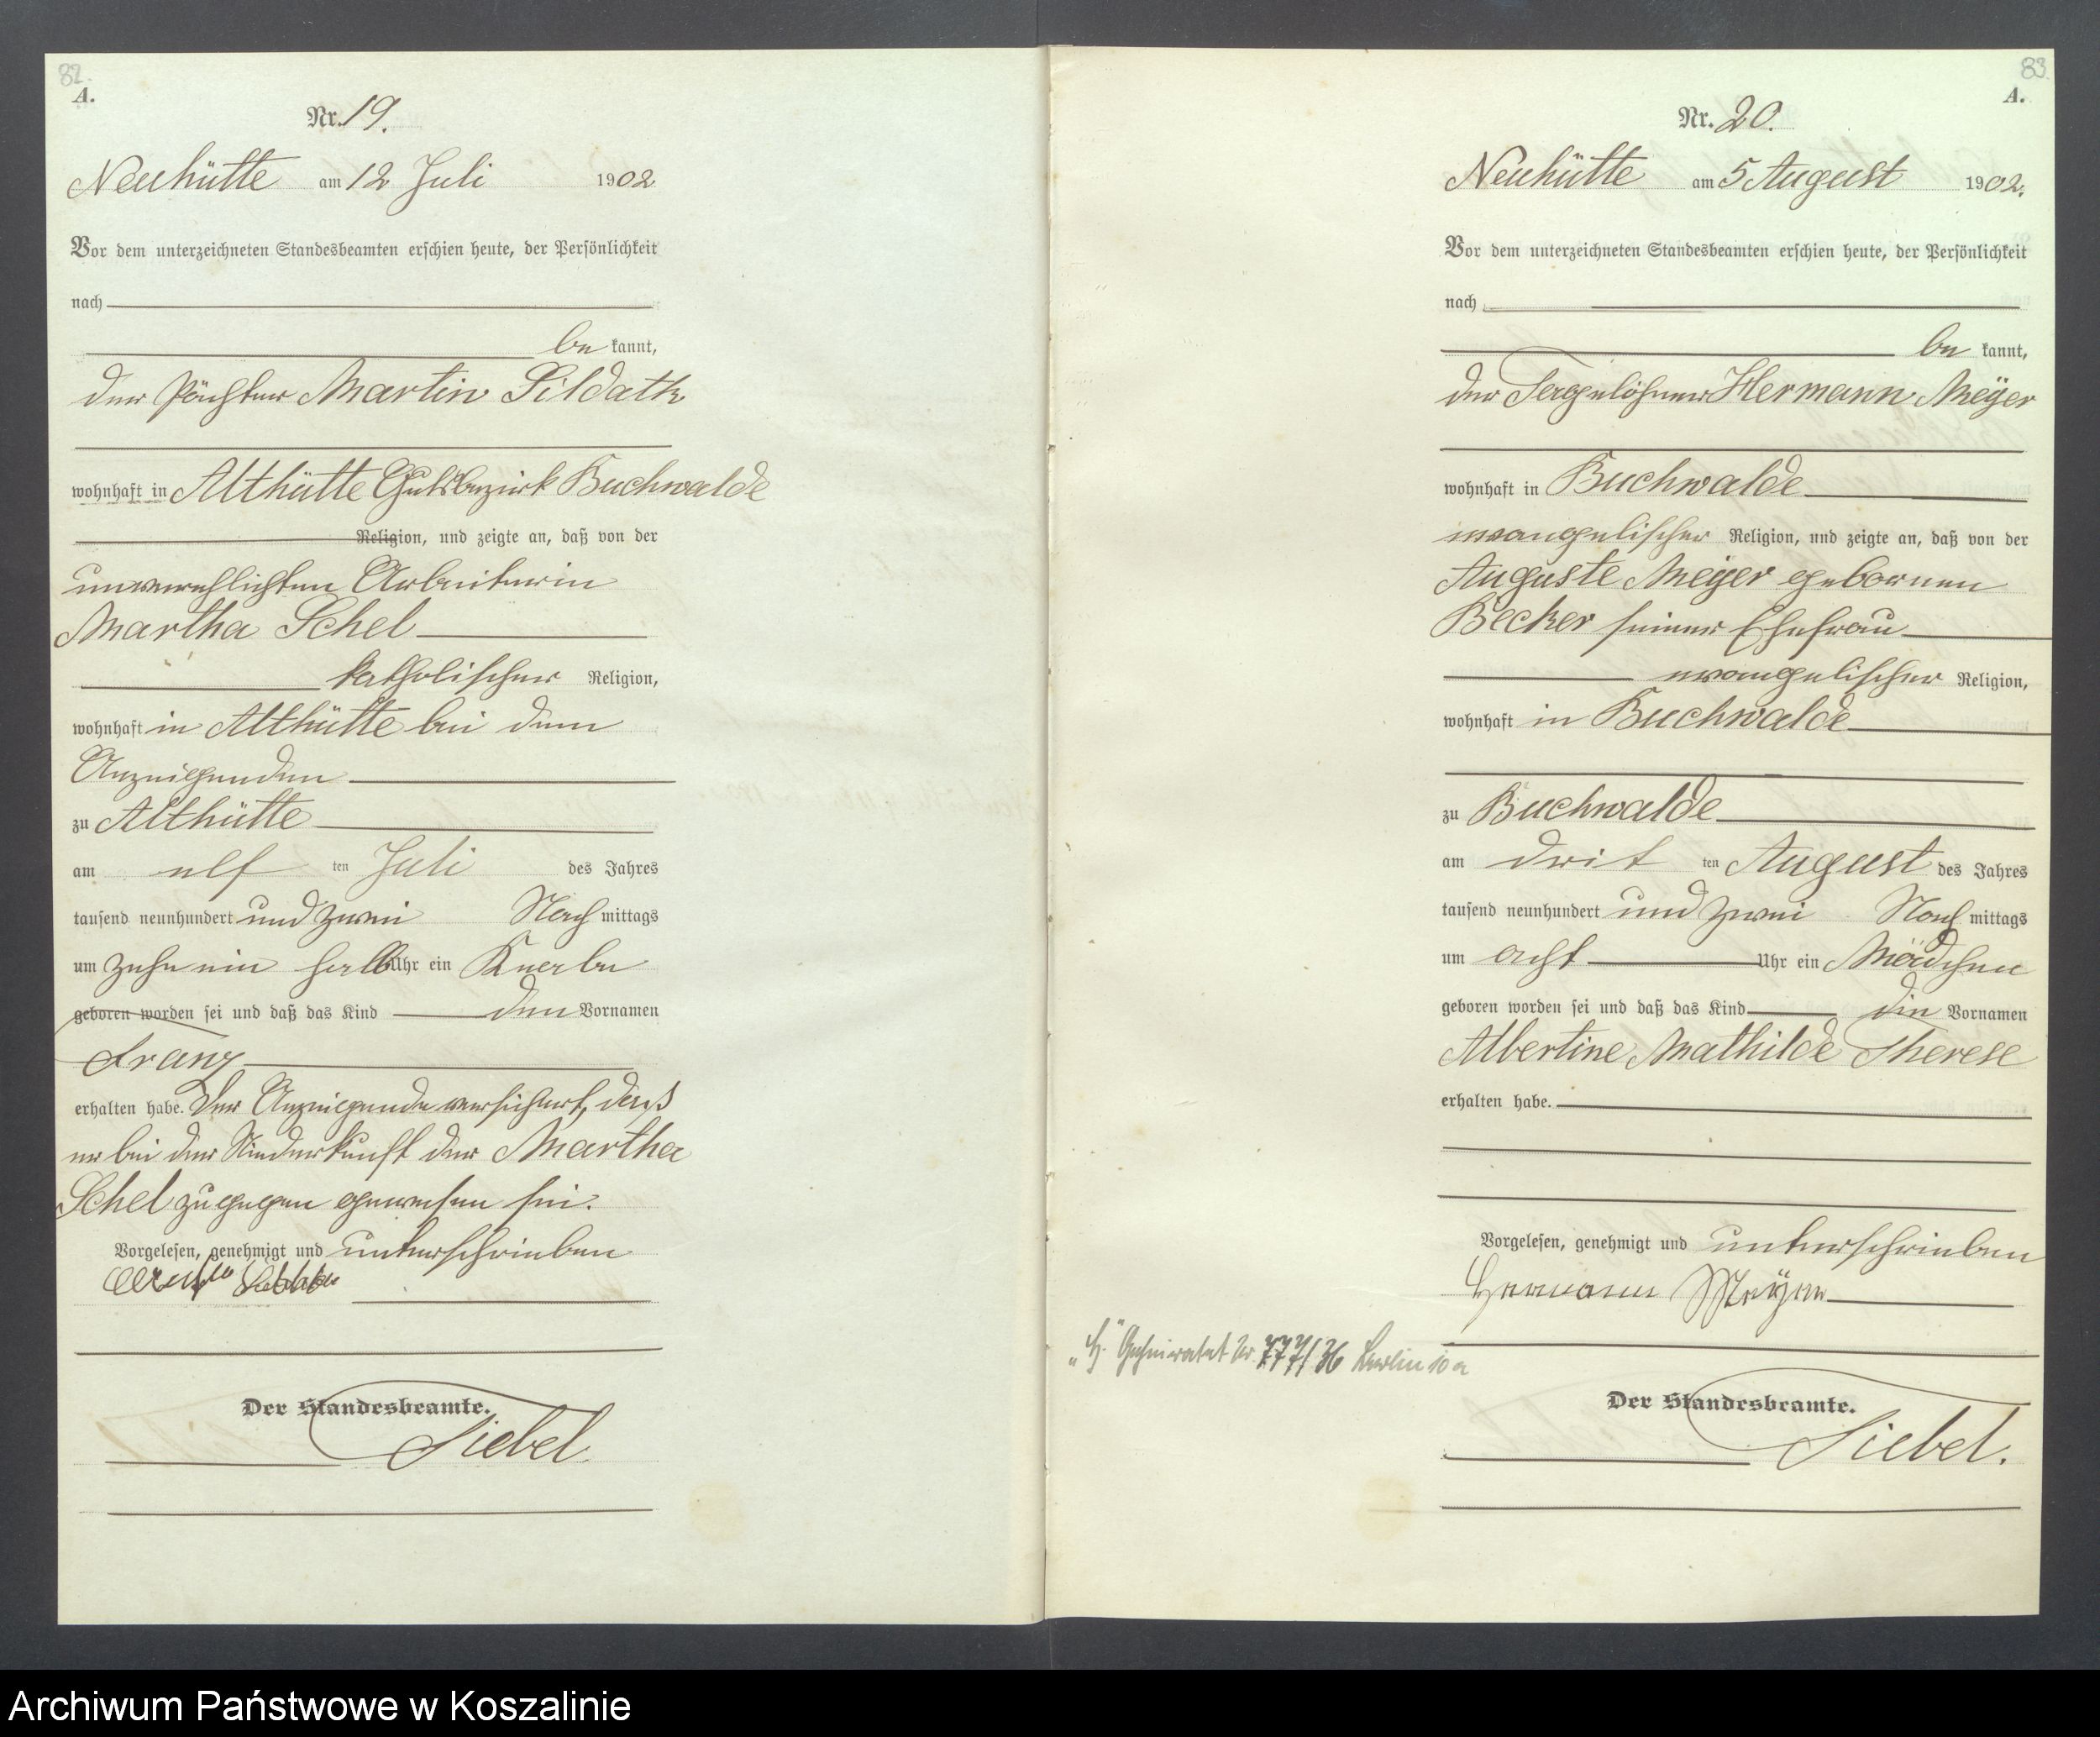 82.
A.
Nr. 19.
Neuhütte am 12 Juli 1902
Vor dem unterzeichneten Standesbeamten erschien heute, der Persönlichkeit
nach
be kannt,
der Pächter Martin Sildath
wohnhaft in Althütte Gutsbezirk Buchwalde
Religion, und zeigte an, daß von der
unverehlichten Arbeiterin
Martha Schel
katholischer Religion,
wohnhaft in Althütte bei dem
Anzeigenden
zu Althütte
am elf ten Juli des Jahres
tausend neunhundert und zwei Nach mittags
um zehn ein halb Uhr ein Knabe
geboren worden sei und daß das Kind den Vornamen
Franz
erhalten habe. Der Anzeigende versichert, daß
er bei der Niederkunft der Martha
Schel zugegen gewesen sei.
Vorgelesen, genehmigt und unterschrieben
Der Standesbeamte.
Siebel
83.
A.
Nr. 20.
Neuhütte am 5 August 1902.
Vor dem unterzeichneten Standesbeamten erschien heute, der Persönlichkeit
nach
be kannt,
der Tagelöhner Hermann Meÿer
wohnhaft in Buchwalde
evangelischer Religion, und zeigte an, daß von der
Auguste Meÿer gebornen
Becker seiner Ehefrau
evangelischer Religion,
wohnhaft in Buchwalde
zu Buchwalde
am drit ten August des Jahres
tausend neunhundert und zwei Nach mittags
um acht Uhr ein Mädchen
geboren worden sei und daß das Kind die Vornamen
Albertine Mathilde Therese
erhalten habe.
Vorgelesen, genehmigt und unterschrieben
Hermann Meÿer
„H." Geheiratet Nr. 777/36 Berlin 10a
Der Standesbeamte.
Siebel.
Archiwum Państwowe w Koszalinie